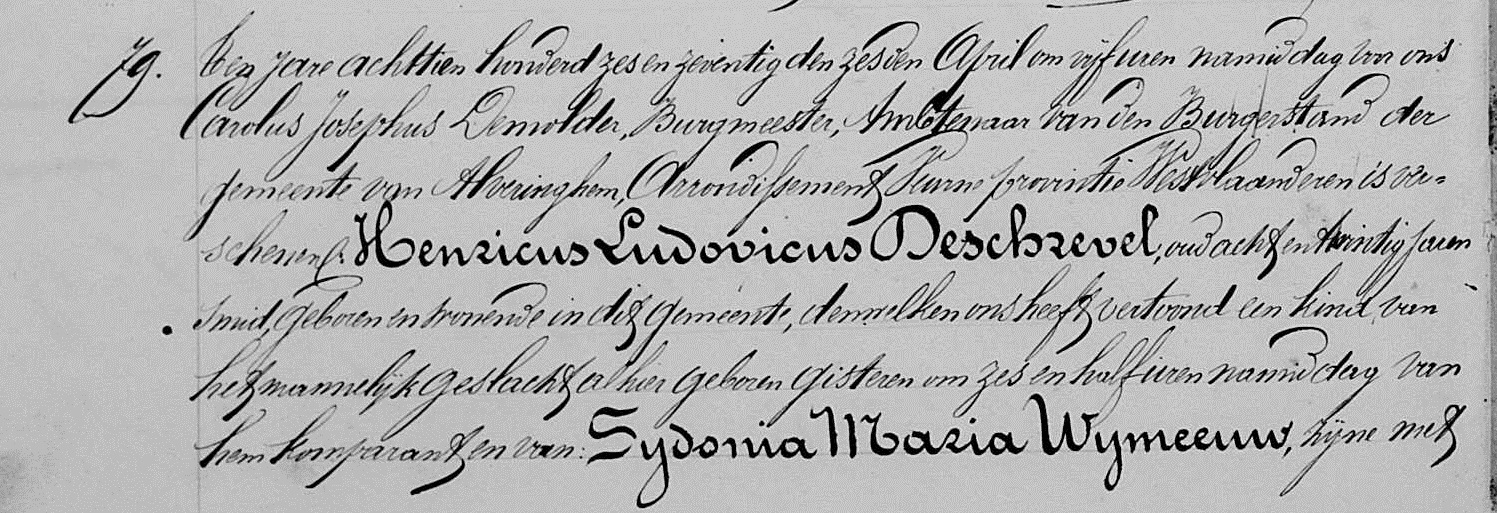 79. Ten jare achttien honderd zes en zeventig den zesden April om vijf uren namiddag voor ons
Carolus Josephus Demolder, Burgmeester, Ambtenaar van den Burgerstand der
gemeente van Alveringhem, Arrondissement Veurne provintie Westvlaanderen is ver=
schenen: Henricus Ludovicus Deschrevel, oud acht en twintig jaren
smid, geboren en wonende in dit gemeente, dennwelken ons heeft vertoond een kind van
het mannelijk geslacht alhier geboren gisteren om zes en half uren namiddag van
hem komparant en van: Sydonia Maria Wymeeuw, zijne met